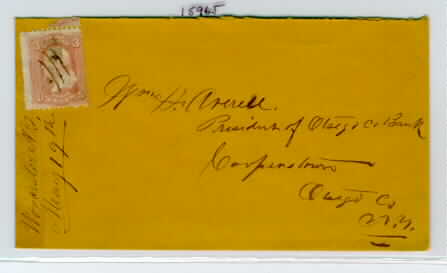 15965
3
Wm H. Averell.
President of Otsego Co Bank
Cooperstown
Otsego Co
N.Y.
May 19th